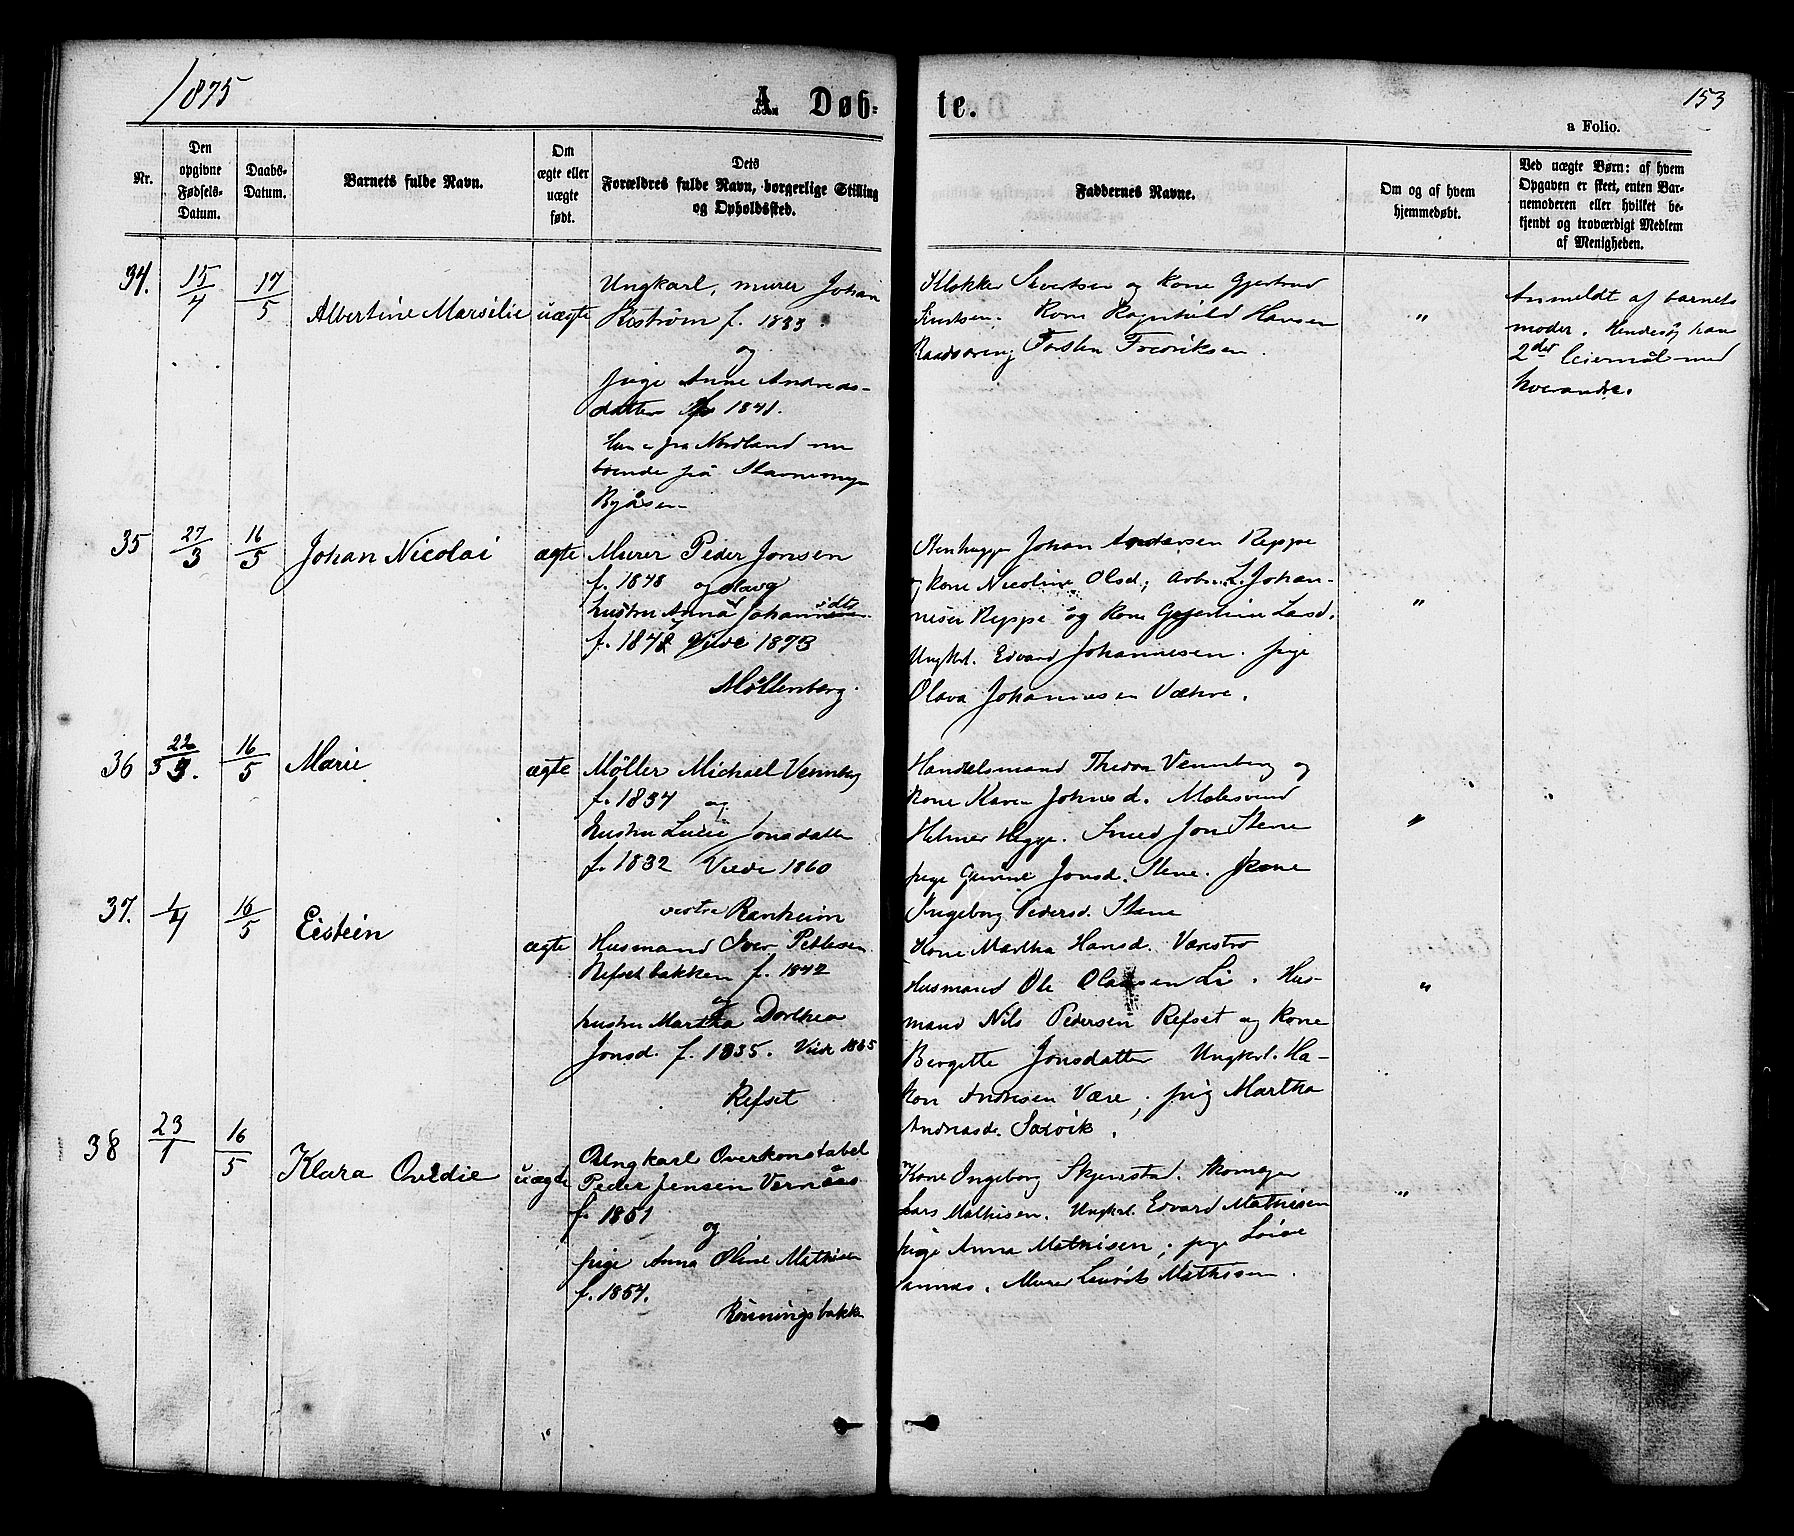 1875
A. Døb-
te.
153
a Folio.
Nr.
Den
opgivne
Fødsels-
Datum.
Daabs-
Datum.
Barnets fulde Navn.
Om
ægte eller
uægte
født.
Dets
Forældres fulde Navn, borgerlige Stilling
og Opholdssted.
Faddernes Navne.
Om og af hvem
hjemmedøbt.
Ved uægte Børn: af hvem
Opgaven er skeet, enten Bar-
nemoderen eller hvilket be-
kjendt og troværdigt Medlem
af Menigheden.
34.
15/4
17/5
Albertine Marsilie
uægte
Ungkarl, murer Johan
f. 1833.
og
pige Anne Andreas-
datter f. 1841.
Hun er fra Nordland nu
boende på
Byåsen
Klokker Sivertsen og kone Gjertrud
Knutsen. Kone Ragnhild Hansen
Torsten Fredriksen.
"
Anmeldt af barnets
moder. Hendes og han
2det leiermål med
hverandre.
35
27/3
16/5
Johan Nicolai
ægte
Murer Peder Jonsen
f. 1848 og
hustru Anna Johannesdtr
f. 1848 Viede 1873
Møllenberg.
Stenhugger Johan Andersen Reppe
og kone Nicoline Olsd; Arb. L. Johan-
nesen Reppe og kone Gjertine Larsd.
Ungkrl. Edvard Johannesen. pige
Olava Johannesen Væhre.
"
36
22/3
16/5
Marie
ægte
Møller Michael Vennberg
f. 1834 og
hustru Lucie Jonsdatter
f. 1832 Viede 1860
vestre Ranheim
Handelsmand Theodor Vennberg og
kone Karen Johnsd. Malersvend
Helmer Hegge. Smed Jon Stene
pige Gurine Jonsd. Stene. kone
Ingeborg Pedersd. Stene
"
37.
1/4
16/5
Eistein
ægte
Husmand Iver Pettersen
Refsetbakken f. 1842
og
hustru Martha Dorthea
Jonsd. f. 1835. Viede 1865
Refset
Kone Martha Hansd. Værestrø
Husmand Ole Olausen Li. Hus-
mand Nils Pedersen Refset og kone
Bergitte Jonsdatter Ungkrl. Ha-
kon Andresen Være; pig Martha
Andreasd. Saxvik.
"
38
23/1
16/5
Klara Ovedie
uægte
Ungkarl Overkonstabel
Peder Jensen Vernæs
f. 1851
og
pige Anna Oline Mathisen
f. 1854.
Rønningsbakke
Kone Ingeborg Skjerstad. Skomager
Lars Mathisen. Ungkrl. Edvard Mathisen
pige Anna Mathisen; pige Lovise
Murer Mathisen.
"